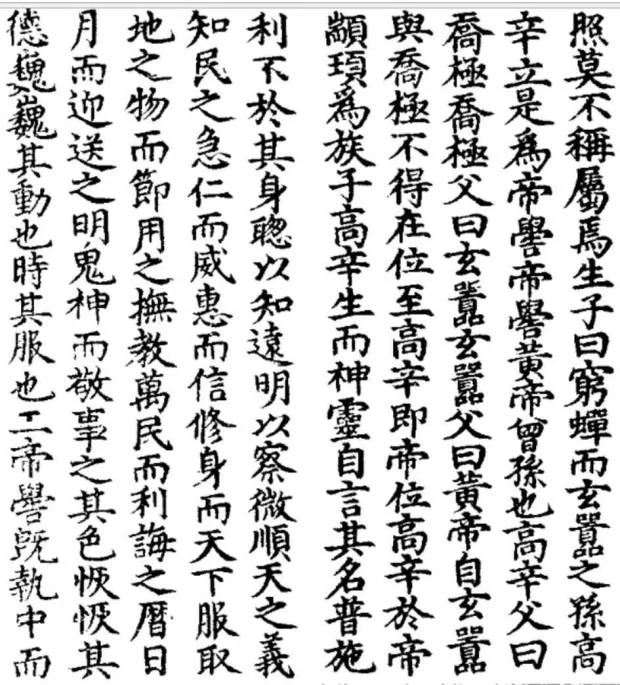 照莫不稱屬焉生子曰窮蟬而玄囂之孫高
辛立是爲帝嚳帝嚳黃帝曾孫也高辛父曰
喬極喬極父曰玄囂玄囂父曰黃帝自玄囂
與喬極不得在位至高辛即帝位高辛於帝
顓頊爲族子高辛生而神靈自言其名普施
利不於其身聰以知遠明以察微順天之義
知民之急仁而威惠而信修身而天下服取
地之物而節用之撫教萬民而利誨之曆日
月而迎送之明鬼神而敬事之其色恢恢其
德巍巍其動也時其服也工帝嚳既執中而